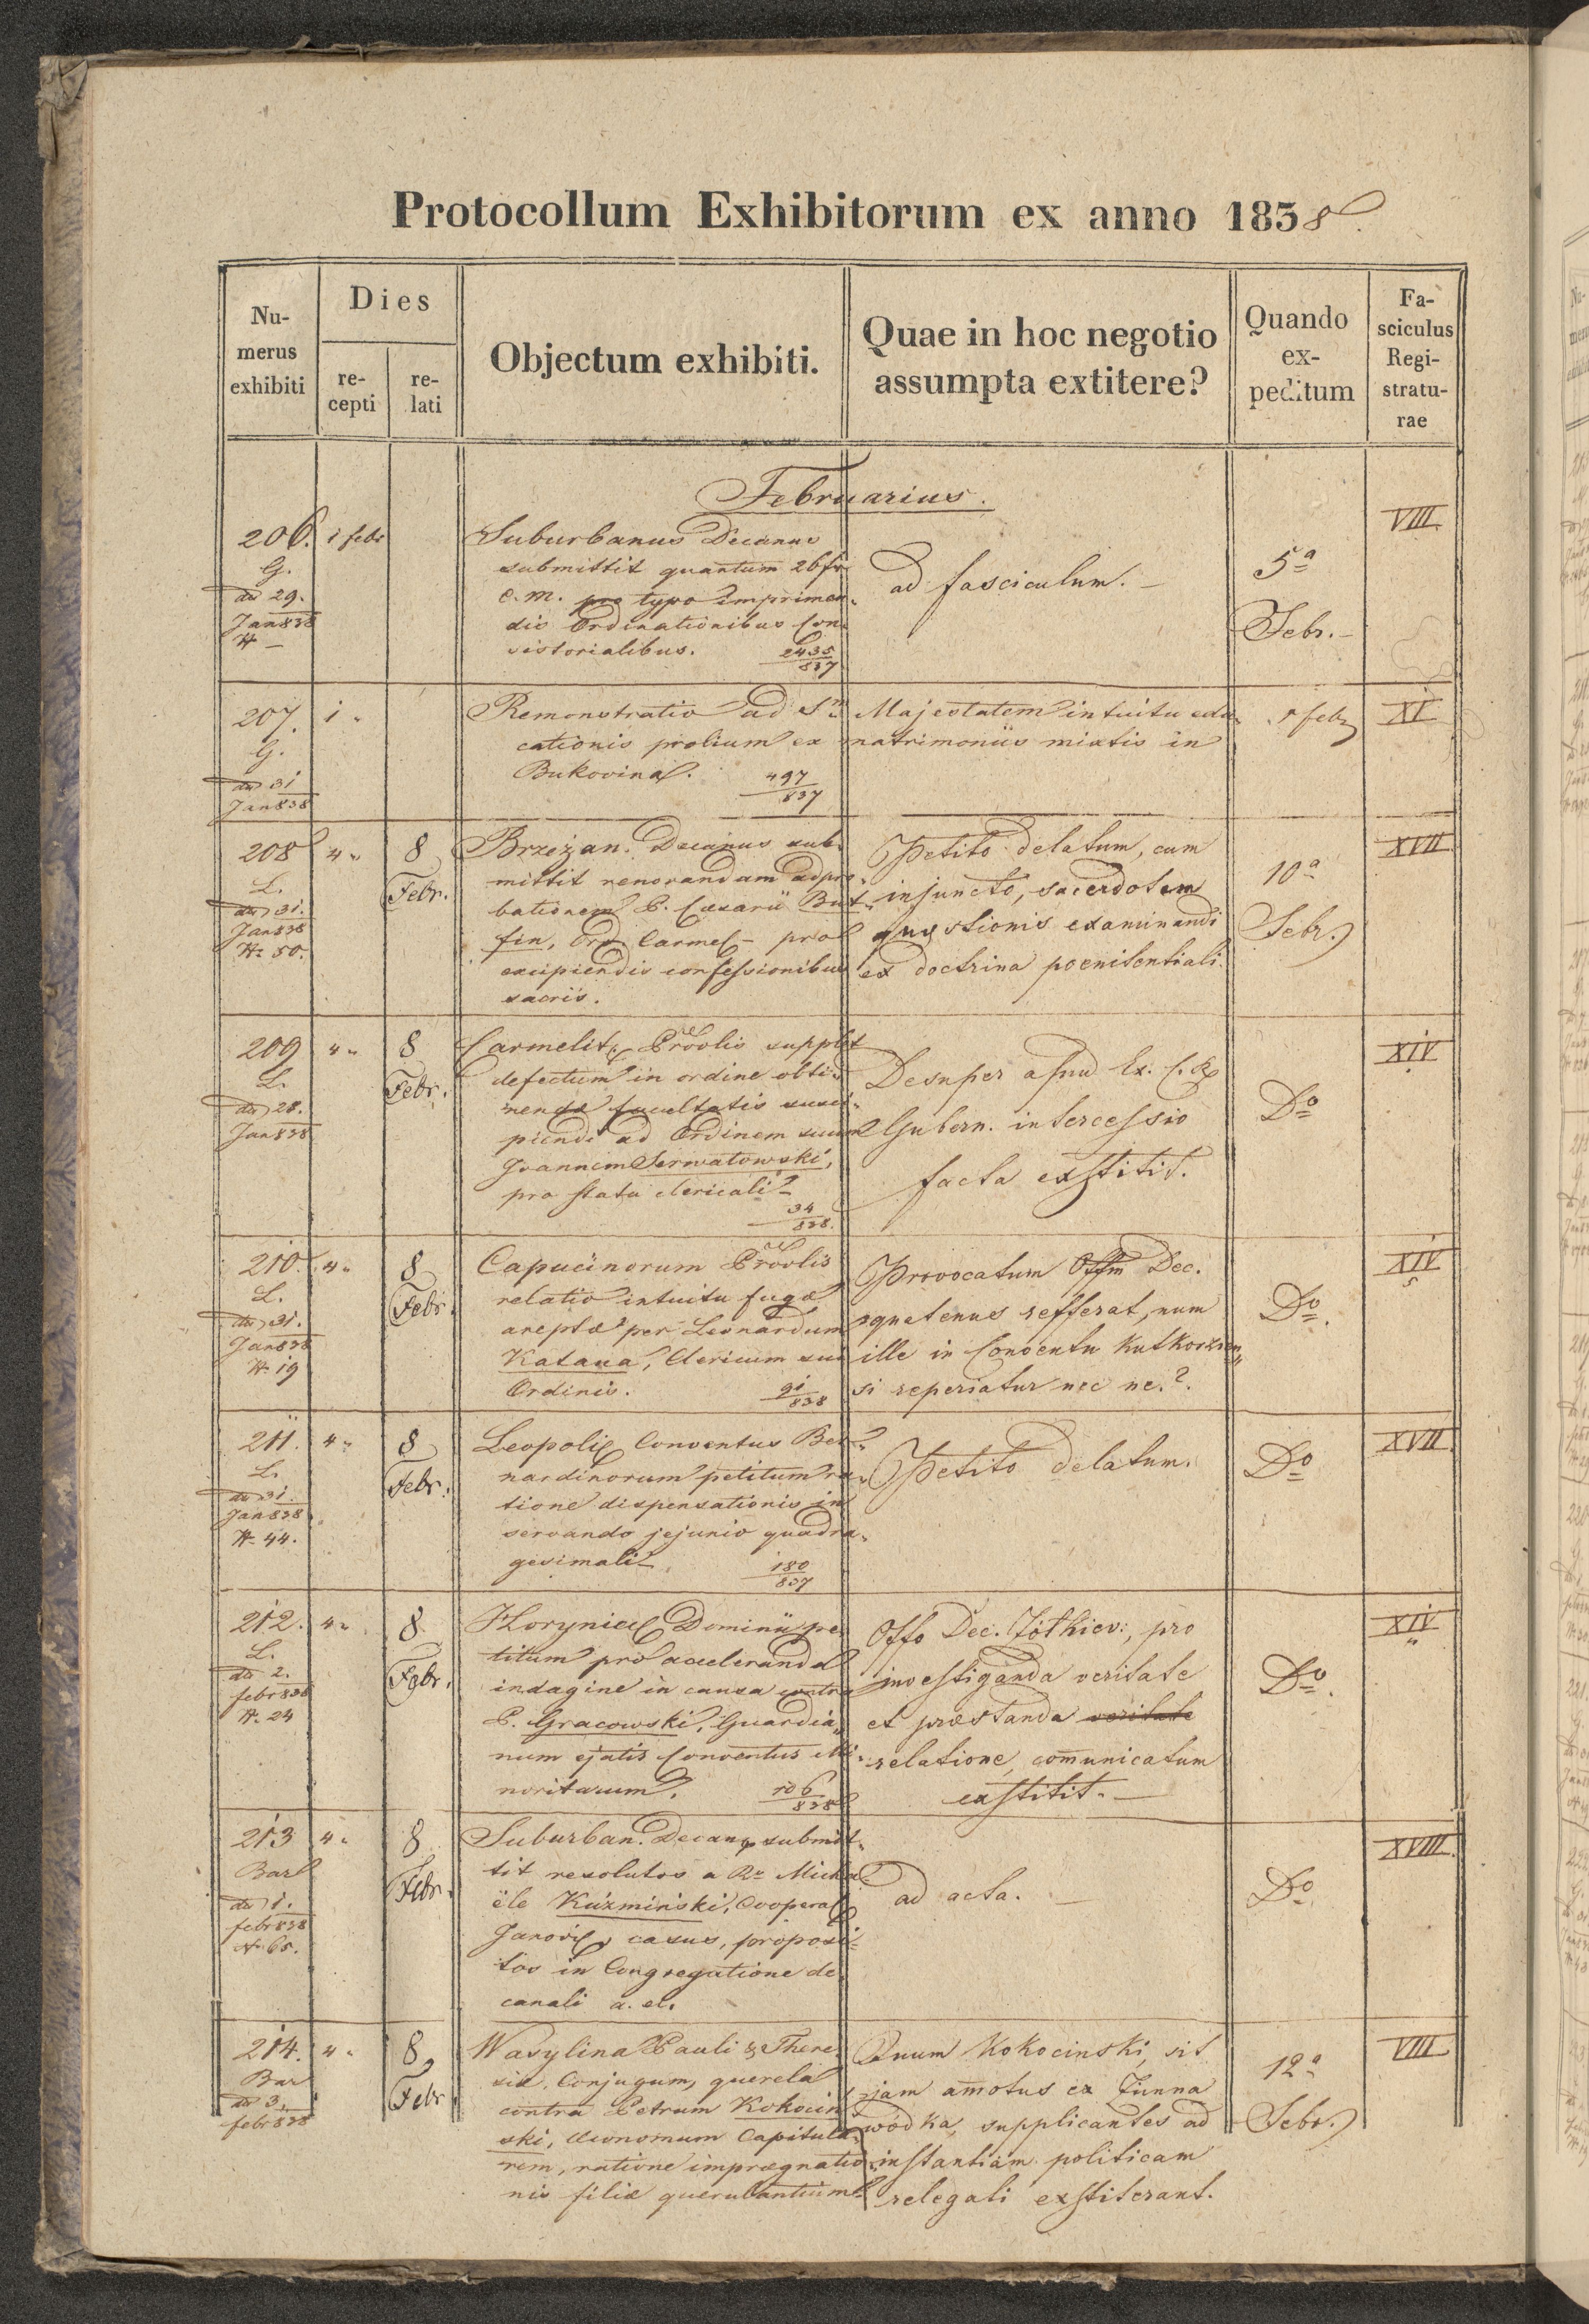 Protocollum Exhibitorum ex anno 1838.
Nu-
merus
exhibiti
Dies
re-
cepti
re-
lati
Objectum exhibiti.
Quae in hoc negotio
assumpta extitere?
Quando
ex-
peditum
Fa-
sciculus
Regi-
stratu-
rae
Februarius.
206. 1 febr
G.
dto 29.
Jan 838
N –
Suburbanus Decanus
submittit quantum 26 fr
c. m. pro typo imprimen-
dis Ordinationibus Con-
sistorialibus. 2435/837
ad fasciculum. –
5ª
Febr. –
VIII.
207. 1 "
G.
dto 31
Jan 838
Remonstratio ad Sm. Majestatem intuitu edu-
cationis prolium ex matrimoniis mixtis in
Bukovina. 497/837
5 febr
XI
208 4 "
L.
dto 31.
Jan 838
N. 50.
8
Febr.
Brzeżan. Decanus sub-
mittit renovandam adpro-
bationem P. Caesarii But-
fin, Ord. Carmel – pro
excipiendis confessionibus
sacris.
Petito delatum, cum
injuncto, sacerdotem
quaestionis examinandi
ex doctrina poenitentiali.
10ª
Febr.
XVII
209 4 "
L.
dto 28.
Jan 838
8
Febr.
Carmelit. Provlis supplet
defectum in ordine obti-
nendae facultatis susci-
piendi ad Ordinem suum
Joannem Serwatowski,
pro statu clericali –
34/838.
Desuper apud Ex. C. R.
Gubern. intercessio
facta exstitit.
Do
XIV
210. 4 "
L.
dto 31.
Jan 838
N. 19
8
Febr.
Capucinorum Provlis
relatio intuitu fugae
areptae per Leonardum
Katana, Clericum sui
Ordinis. 91/838
Provocatum Offm Dec.
quatenus refferat, num
ille in Conventu Kutkorzen-
si reperiatur nec ne.?.
Do.
XIV
211. 4 "
L.
dto 31.
Jan 838.
N. 44.
8
Febr.
Leopoli Conventus Ber-
nardinorum petitum ra-
tione dispensationis in
servando jejunio quadra-
gesimali – 180/837
Petito delatum.
Do
XVII.
212. 4 "
L.
dto 2.
febr 838
N. 24
8.
Febr.
Horyniec Dominii pe-
titum pro acceleranda
indagine in causa contra
P. Gracowski, Guardia-
num ejatis Conventus Mi-
noritarum. 106/838
Offo Dec. Żołkiev:, pro
investiganda veritate
et praestanda veritate
relatione, comunicatum
exstitit. –
Do.
XIV
213 4 "
Bar
dto 1.
febr 838
N. 65.
8
Febr.
Suburban. Decanus submit-
tit resolutos a Rr Micha-
ële Kuźmiński, Coopera
Janovi casus, proposi-
tos in Congregatione de-
canali a. el.
ad acta. –
Do.
XVIII.
214. 4 "
Bar
dto 3.
febr 838
8
Febr.
Wasylina Pauli & There-
sia, Conjugum, querela
contra Petrum Kokocin-
ski, Oeconomum Capitula-
rem, ratione impraegnatio-
nis filiae querulantium.
Quum Kokocinski, sit
jam amotus ex Zinna
wodka, supplicantes ad
instantiam politicam
relegati exstiterant.
12ª
Febr.
VIII